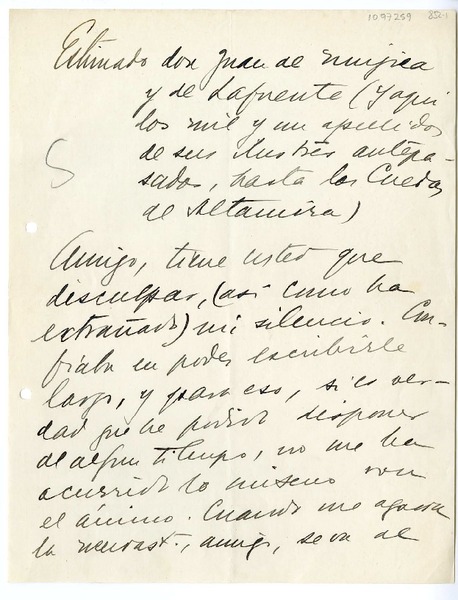 1097259 852-1
Estimado don Juan de Mujica
y de Lafuente (y aqui
los mil y un apellidos
de sus ilustres antepa-
sados, hasta las Cuevas
de Altamira)
S
Amigo, tiene usted que
disculpar, (así como ha
extrañado) mi silencio. Con-
fiaba en poder escribirle
largo, y para eso, si es ver-
dad que he podido disponer
de algún tiempo, no me ha
ocurrido lo mismo con
el ánimo. Cuando me agarra
la neurast., amigo, se va al